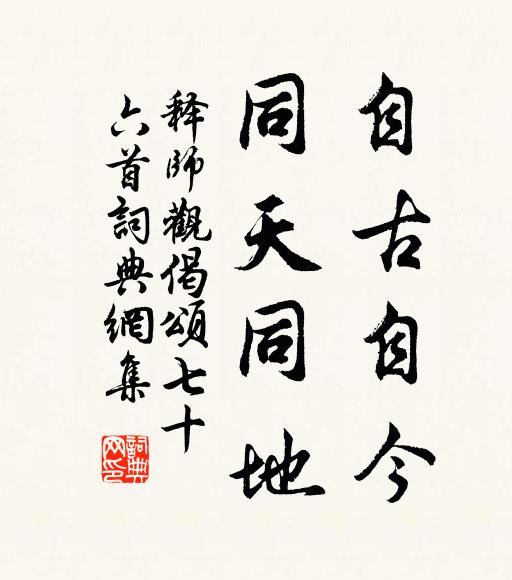 自古自今
同天同地
释師觀偈頌七十
六首詞典網集
詞典网印